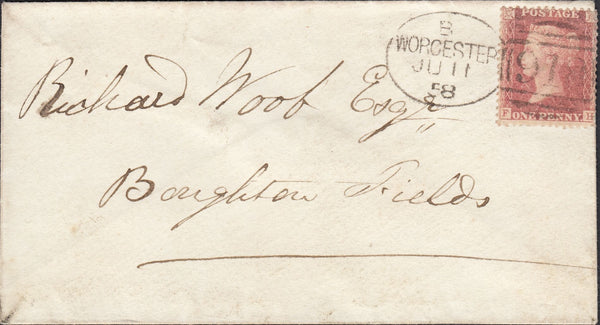 B
WORCESTER
JU 11
58
POSTAGE
917
ONE PENNY
F H
Richard Woof Esqr
Boughton Fields